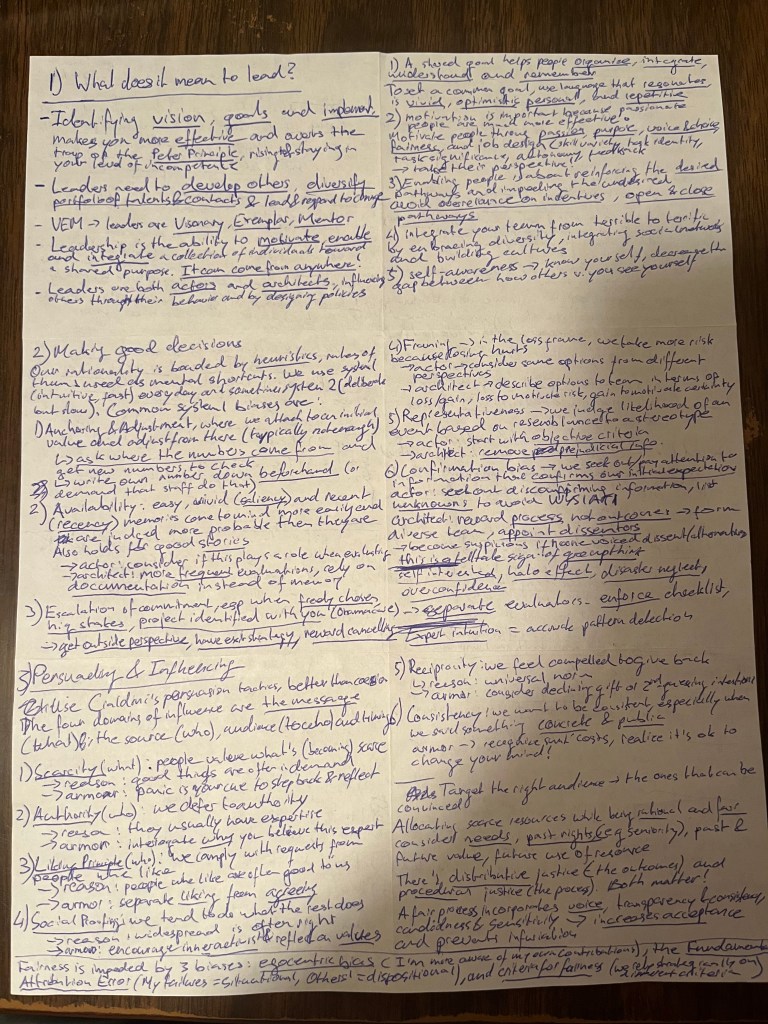 1) What does it mean to lead?
- Identifying vision, goals and implement.
makes you more effective and avoids the
trap of the Peter Principle, rising & staying in
your level of incompetence
- Leaders need to develop others, diversify
portfolio of talents & contacts & lead & respond to change
- VEM → leaders are Visionary, Exemplar, Mentor
- Leadership is the ability to motivate, enable
and integrate a collection of individuals toward
a shared purpose. It can come from anywhere!
- Leaders are both actors and architects, influencing
others through their behavior and by designing policies
1) A shared goal helps people organize, integrate,
understand and remember
To set a common goal, use language that resonates,
is vivid, optimistic, personal, and repetitive
2) motivation is important because passionate
people are much more effective.
Motivate people through passion, purpose, voice & choice
fairness, and job design (skill variety, task identity,
task significance, autonomy, feedback
→ take their perspective!
3) Enabling people is about reinforcing the desired
pathways and impeding the undesired
avoid overreliance on incentives, open & close
pathways
4) integrate your team from terrible to terrific
by embracing diversity, integrating social networks
and building cultures
5) self-awareness → know yourself, decrease the
gap between how others v. you see yourself
2) Making good decisions
Our rationality is bounded by heuristics, rules of
thumb used as mental shortcuts. We use system 1
(intuitive, fast) everyday and sometimes system 2 (deliberate
but slow). Common system 1 biases are:
1) Anchoring & Adjustment, where we attach to an initial
value and adjust from there (typically not enough)
↳ ask where the numbers come from and
get new numbers to check
↳ write own number down beforehand (or
demand that staff do that)
2) Availability: easy, vivid (saliency) and recent
(recency) memories come to mind more easily and
are judged more probable than they are
Also holds for good stories
→ actor: consider if this plays a role when evaluating
→ architect: more frequent evaluations, rely on
documentation instead of memory
3) Escalation of commitment, esp when freely chosen,
high stakes, project identified with you
→ get outside perspective, have exit strategy, reward cancelling
4) Framing → in the loss frame, we take more risk
because losing hurts
→ actor → consider same options from different
perspectives
→ architect → describe options to team in terms of
loss/gain, loss to motivate risk, gain to motivate certainty
5) Representativeness → we judge likelihood of an
event based on resemblance to a stereotype
→ actor: start with objective criteria
→ architect: remove prejudicial info.
6) Confirmation bias → we seek out/pay attention to
information that confirms our initial expectation
actor: seek out disconfirming information, list
unknowns to avoid WYSIATI
architect: reward process, not outcomes → form
diverse team, appoint dissenters
→ become suspicious if no one voiced dissent/alternatives
this is a telltale sign of groupthink
self interested, halo effect, disaster neglect,
overconfidence
→ separate evaluators, enforce checklist,
Expert intuition = accurate pattern detection
3) Persuading & Influencing
Use Cialdini's persuasion tactics, better than coercion
The four domains of influence are the message
(what), the source (who), audience (to who) and timing
1) Scarcity (what): people value what's (becoming) scarce
→ reason: good things are often in demand
→ armour: panic is your cue to step back & reflect
2) Authority (who): we defer to authority
→ reason: they usually have expertise
→ armor: interrogate why you believe this expert
3) Liking Principle (who): we comply with requests from
people we like
→ reason: people we like are often good to us
→ armor: separate liking from agreeing
4) Social Proofing: we tend to do what the rest does
→ reason: widespread is often right
→ armor: encourage inner activist & reflect on values
5) Reciprocity: we feel compelled to give back
↳ reason: universal norm
→ armor: consider declining gift or 2nd guessing intentions
6) Consistency: we want to be consistent, especially when
we said something concrete & public
armor → recognize sunk costs, realize it's ok to
change your mind!
Target the right audience → the ones that can be
convinced
Allocating scarce resources while being rational and fair
consider needs, past rights (e.g. seniority), past &
future value, future use of resource
There's distributive justice (the outcomes) and
procedural justice (the process). Both matter!
A fair process incorporates voice, transparency & consistency,
candidness & sensitivity → increases acceptance
and prevents infuriation
Fairness is impeded by 3 biases: egocentric bias (I'm more aware of my own contributions), the Fundamental
Attribution Error (My failures = situational, Others' = dispositional), and criteria for fairness (we rely strategically on
different criteria)